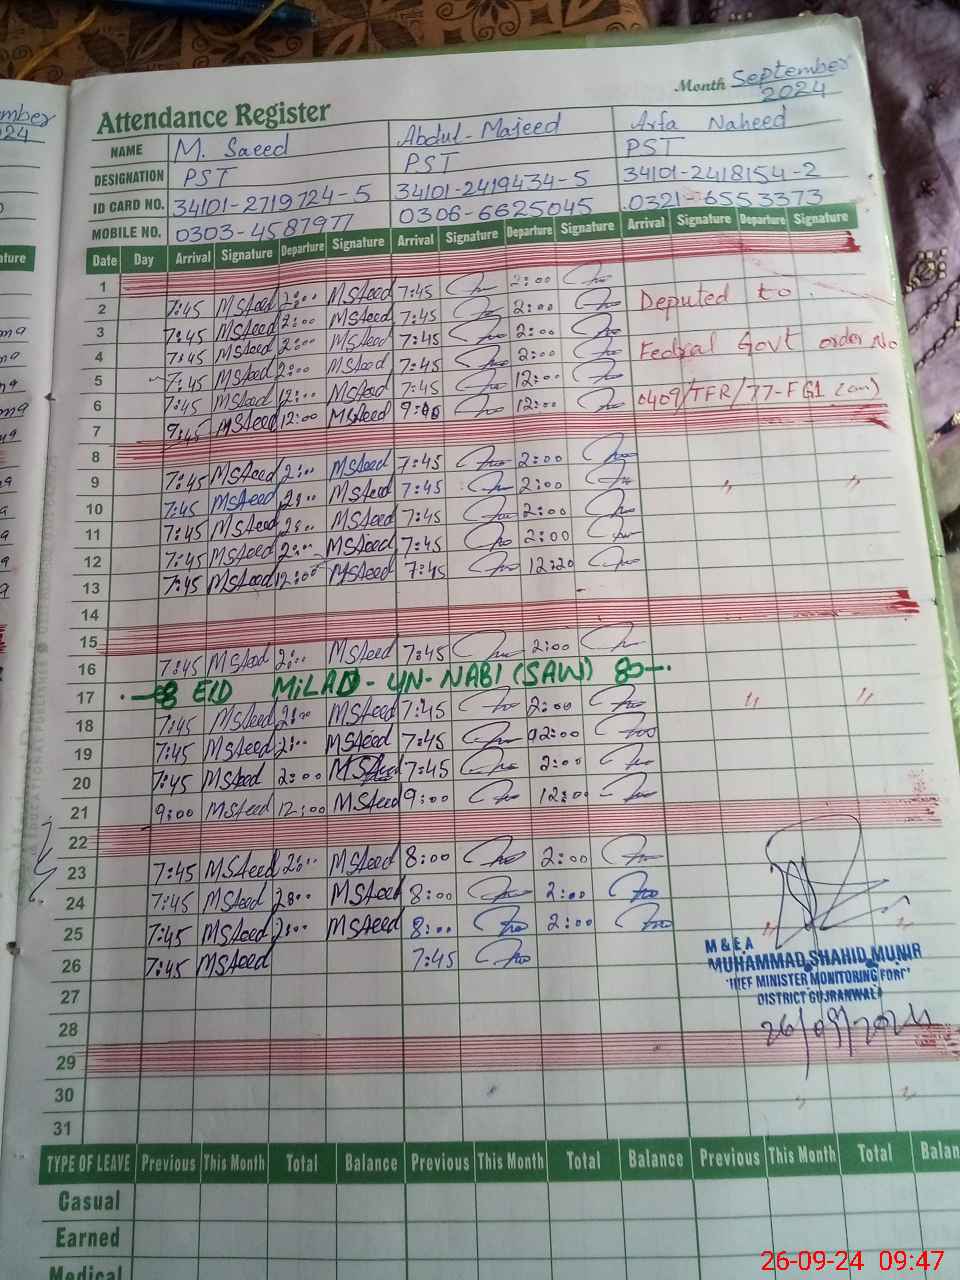 Month September 2024
Attendance Register
NAME M. Saeed Abdul-Majeed Arfa Naheed
DESIGNATION PST PST PST
ID CARD NO. 34101-2719724-5 34101-2419434-5 34101-2418154-2
MOBILE NO. 0303-4587977 0306-6625045 0321-6553373
Date Day Arrival Signature Departure Signature Arrival Signature Departure Signature Arrival Signature Departure Signature
1
2 7:45 MSaeed 2:00 MSaeed 7:45 2:00 Deputed to
3 7:45 MSaeed 2:00 MSaeed 7:45 2:00
4 7:45 MSaeed 2:00 MSaeed 7:45 2:00 Federal Govt order No
5 7:45 MSaeed 2:00 MSaeed 7:45 2:00
6 7:45 MSaeed 12:00 MSaeed 7:45 12:00 0409/TFR/77-FG1
7 9:45 MSaeed 12:00 MSaeed 9:00 12:00
8
9 7:45 MSaeed 2:00 MSaeed 7:45 2:00
10 7:45 MSaeed 2:00 MSaeed 7:45 2:00 " "
11 7:45 MSaeed 2:00 MSaeed 7:45 2:00
12 7:45 MSaeed 2:00 MSaeed 7:45 2:00
13 7:45 MSaeed 12:00 MSaeed 7:45 12:20
14
15
16 7:45 MSaeed 2:00 MSaeed 7:45 2:00
17 EID MILAD-UN-NABI (SAW)
18 7:45 MSaeed 2:00 MSaeed 7:45 2:00 " "
19 7:45 MSaeed 2:00 MSaeed 7:45 02:00
20 7:45 MSaeed 2:00 MSaeed 7:45 2:00
21 9:00 MSaeed 12:00 MSaeed 9:00 12:00
22
23 7:45 MSaeed 2:00 MSaeed 8:00 2:00
24 7:45 MSaeed 2:00 MSaeed 8:00 2:00
25 7:45 MSaeed 2:00 MSaeed 8:00 2:00
26 7:45 MSaeed 7:45
M & E A
MUHAMMAD SHAHID MUNIR
CHIEF MINISTER MONITORING FORCE
DISTRICT GUJRANWALA
26/09/2024
27
28
29
30
31
TYPE OF LEAVE Previous This Month Total Balance Previous This Month Total Balance Previous This Month Total Balan
Casual
Earned
Medical
26-09-24 09:47